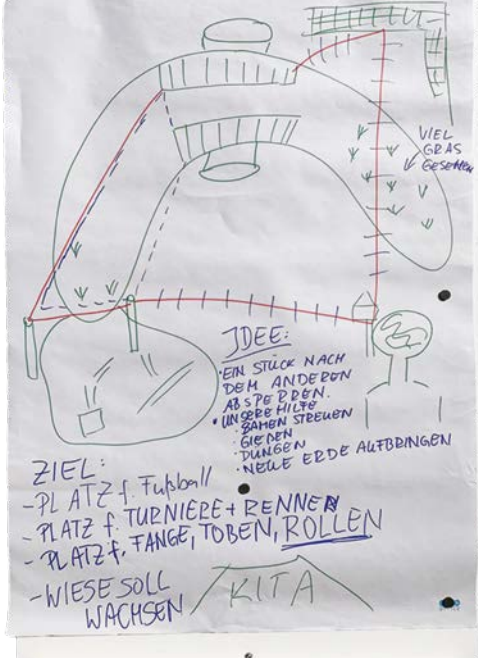 VIEL
GRAS
GESEHEN
JDEE:
• EIN STÜCK NACH
DEM ANDEREN
ABSPERREN.
• UNSERE HILFE
• SAMEN STREUEN
• GIEßEN
• DÜNGEN
• NEUE ERDE AUFBRINGEN
ZIEL:
- PLATZ f. Fußball
- PLATZ f. TURNIERE + RENNEN
- PLATZ f. FANGE, TOBEN, ROLLEN
- WIESE SOLL
WACHSEN
KITA